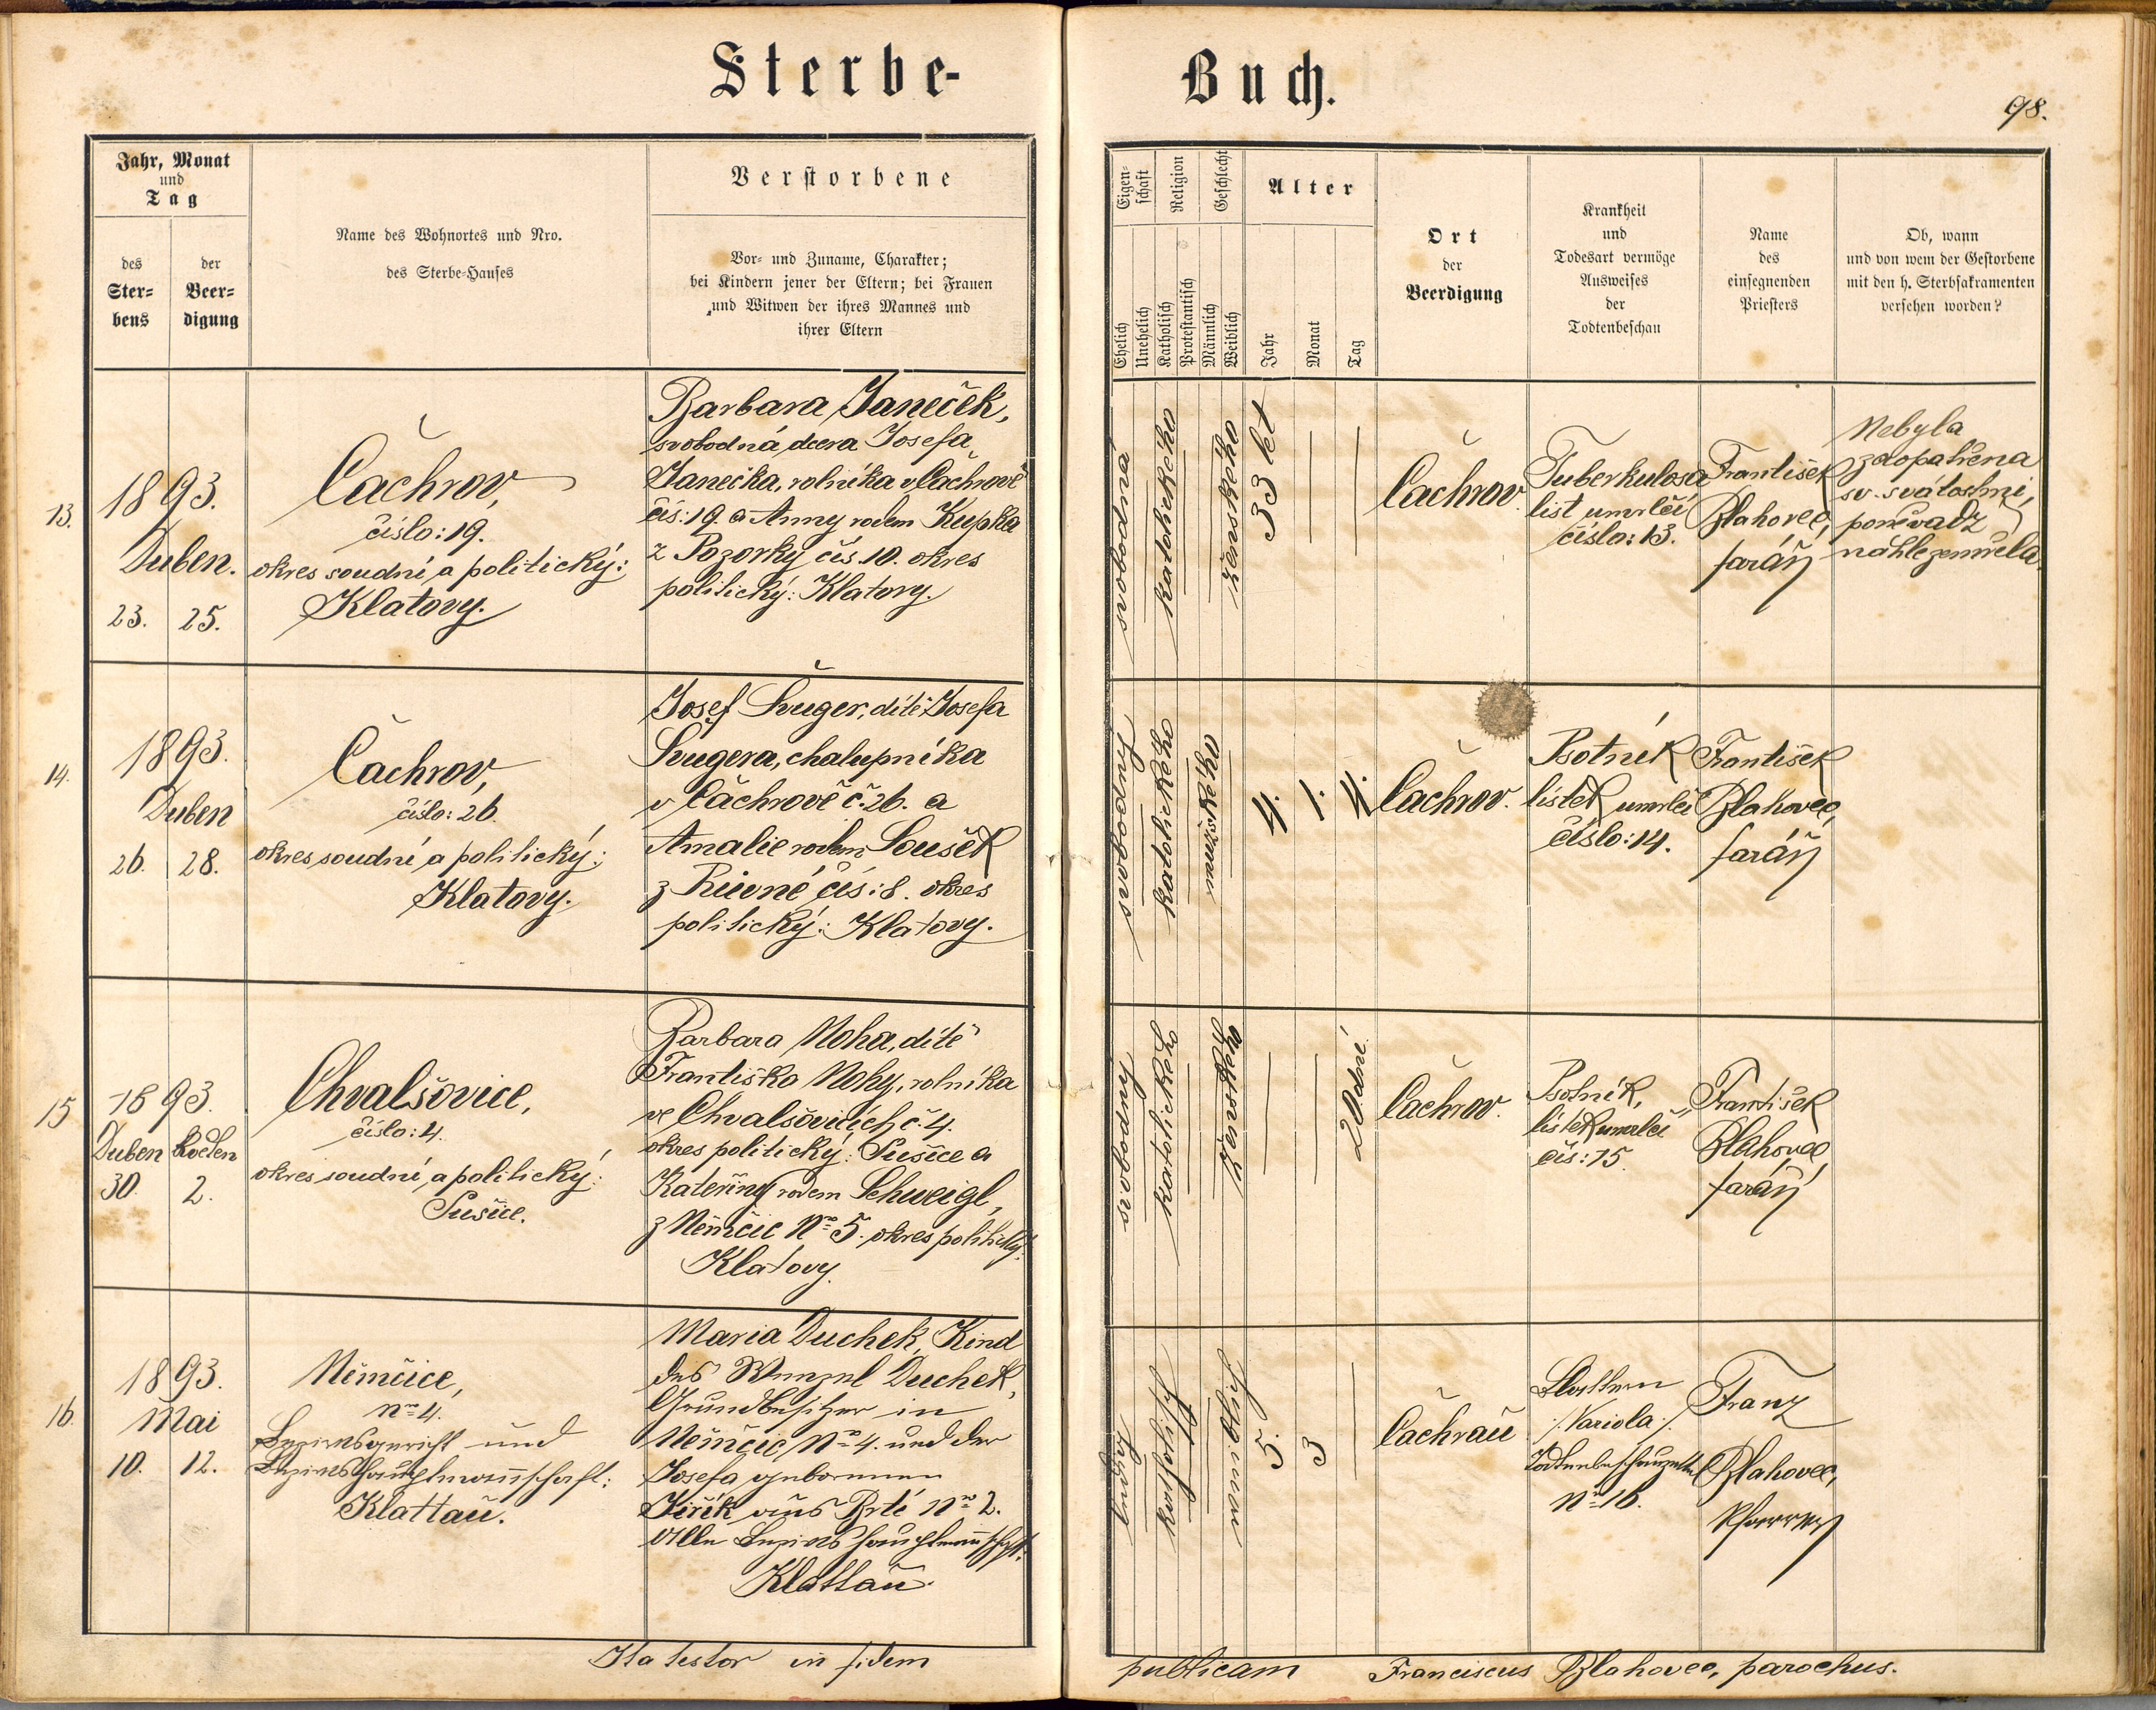 Sterbe-
Buch.
98.
Jahr, Monat
und
Tag
des
Ster-
bens
der
Beer-
digung
Name des Wohnortes und Nro.
des Sterbe-Hauses
Verstorbene
Vor- und Zuname, Charakter;
bei Kindern jener der Eltern; bei Frauen
und Witwen der ihres Mannes und
ihrer Eltern
Eigen-
schaft
Religion
Geschlecht
Ehelich
Unehelich
Katholisch
Protestantisch
Männlich
Weiblich
Alter
Jahr
Monat
Tag
Ort
der
Beerdigung
Krankheit
und
Todesart vermöge
Ausweises
der
Todtenbeschau
Name
des
einsegnenden
Priesters
Ob, wann
und von wem der Gestorbene
mit den h. Sterbsakramenten
versehen worden?
13.
1893.
Duben.
23. 25.
Čachrov,
číslo: 19.
okres soudní a politický:
Klatovy.
Barbara Janeček,
svobodná dcera Josefa
Janečka, rolníka v Čachrově
čís: 19. a Anny rodem Kupka
z Pozorky čís. 10. okres
politický: Klatovy.
svobodná
katolického
ženského
33 let
Čachrov.
Tuberkulosa
list umrlčí
číslo: 13.
František
Blahovec,
farář
Nebyla
zaopatřena
sv. svátostmi,
poněvadž
náhle zemřela.
14.
1893.
Duben
26. 28.
Čachrov,
číslo: 26.
okres soudní a politický:
Klatovy.
Josef Šuger, dítě Josefa
Šugera, chalupníka
v Čachrově č. 26. a
Amalie rodem Soušek
z Řuvné čís: 8. okres
politický: Klatovy.
svobodný
katolického
mužského
4. 1. 4.
Čachrov.
Psotník
lístek umrlčí
číslo: 14.
František
Blahovec,
farář
15
1893.
Duben květen
30. 2.
Chvalšovice,
číslo: 4.
okres soudní a politický:
Sušice.
Barbara Noha, dítě
Františka Nohy, rolníka
ve Chvalšovicích č. 4.
okres politický: Sušice a
Kateřiny rodem Schweigl,
z Němčic No 5. okres politický:
Klatovy.
svobodný
katolického
ženského
20 dní.
Čachrov.
Psotník,
lístek umrlčí
čís: 15.
František
Blahovec
farář
16.
1893.
Mai
10. 12.
Němčice,
No 4.
Bezirksgericht und
Bezirkshauptmannschaft:
Klattau.
Maria Duchek, Kind
des Wenzel Duchek,
Grundbesitzer in
Němčic No 4. und der
Josefa geborenen
Jiřík aus Brtí No 2.
Alle Bezirkshauptmannschaft:
Klattau.
ledig
katholisch
weiblich
5. 3
Čachrau
Blattern
/: Variola :/
Todtenbeschauzettel
No 16.
Franz
Blahovec,
Pfarrer
Ita testor in fidem
publicam Franciscus Blahovec, parochus.